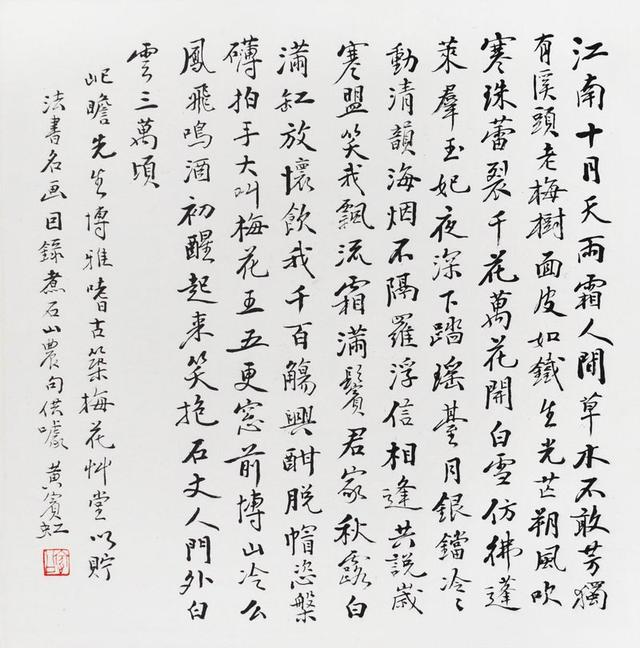 江南十月天雨霜人間草木不敢芳獨
有溪頭老梅樹面皮如鐵生光芒朔風吹
寒珠蕾裂千花萬花開白雪仿彿蓬
萊羣玉妃夜深下踏瑤臺月銀鐺泠々
動清韻海烟不隔羅浮信相逢共說歲
寒盟笑我飄流霜滿鬢君家秋露白
滿缸放懷飲我千百觴興酣脫帽恣槃
礴拍手大叫梅花王五更窓前博山冷么
鳳飛鳴酒初醒起來笑抱石丈人門外白
雲三萬頃
岠瞻先生博雅嗜古築梅花艸堂以貯
法書名画因錄煮石山農句供噱 黄賓虹